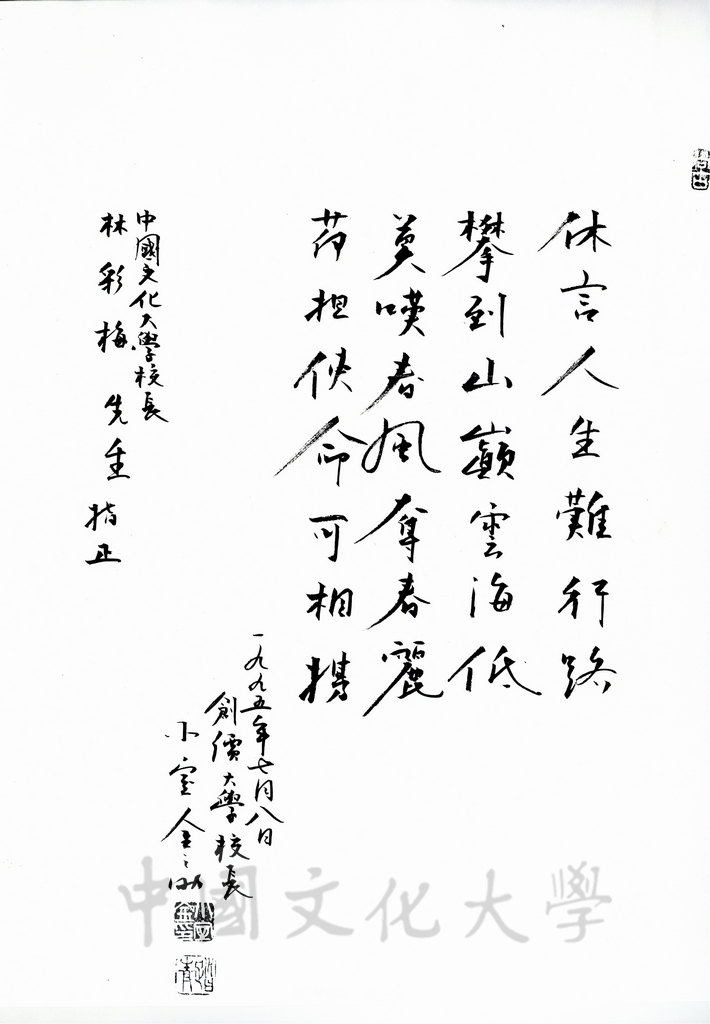 休言人生難行路
攀到山巔雲海低
莫嘆春風奪春麗
荷担使命可相携
一九九五年七月八日
創價大學校長
小室金之助
中國文化大學校長
林彩梅先生指正
中國文化大學